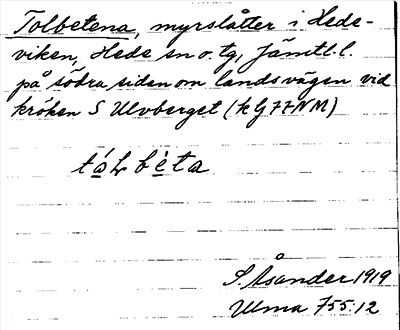 Tolbetena, myrslåtter i Hede-
viken, Hede sn o. tg, Jämtl. l.
på södra sidan om landsvägen vid
kröken S Ulvberget (k G 77 NM)
tȧⱡbèta
S. Åsander 1919
Ulma 755:12